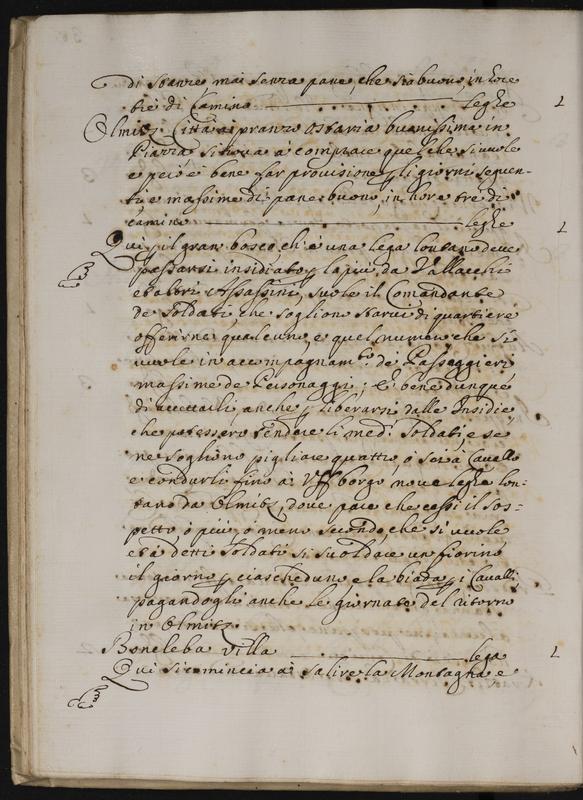 di stanze mai senza pane, che sia buono, in hore
tre di Camino leghe 1
Olmitz Città à pranzo Ostaria buanissima in
Piazza si trova à comprare quel che si vuole
e però è bene far provisione p li giorni seguen-
ti e massime di pane buono, in hore tre di
camino leghe 1
Qui p il gran bosco ch'è una lega lontano deve
passarsi insidiato p la più da Vallacchi
et altri Assassini, suole il Comandante
de Soldati che sogliono starvi di quartiere
offerirne qualcuno e quel numero che si
vuole in accompagnam.to de Passeggieri
massime de Personaggi; E' bene dunque
di accettarli anche p liberarsi dalle Insidie
che potessero tendere li med.i Soldati, e se
ne sogliono pigliare quattro, ò sei à Cavallo
e condurli fino à Uffborgo nove leghe lon-
tano da Olmitz, dove pare che cessi il sos-
petto, ò più, ò meno secondo che si vuole
et à detti Soldati si suol dare un fiorino
il giorno p ciascheduno e la biada p i Cavalli
pagandogli anche le giornate del ritorno
in Olmitz
Boneleba Villa lega 1
Qui si comincia à salire la Montagna, e